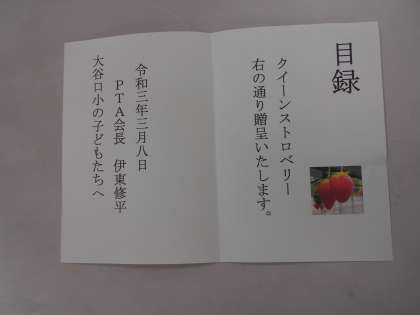 目録
クイーンストロベリー
右の通り贈呈いたします。
令和三年三月八日
PTA会長 伊東修平
大谷口小の子どもたちへ